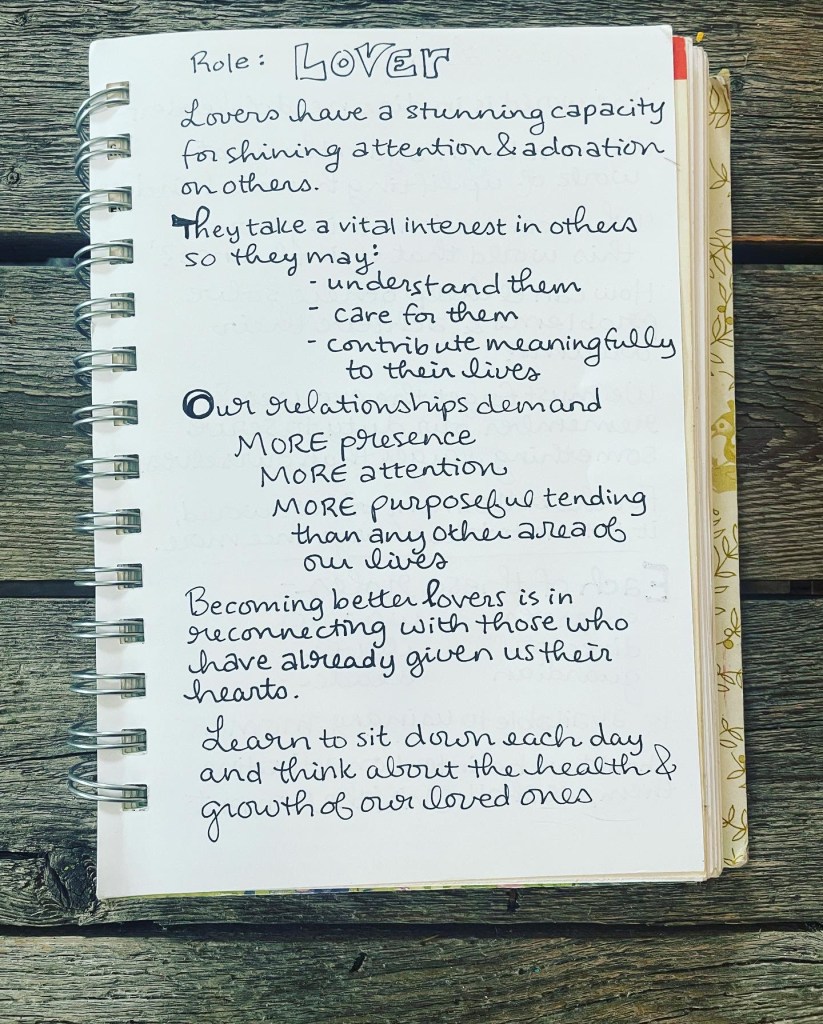 Role: LOVER
Lovers have a stunning capacity
for shining attention & adoration
on others.
They take a vital interest in others
so they may:
- understand them
- care for them
- contribute meaningfully
to their lives
Our relationships demand
MORE presence
MORE attention
MORE purposeful tending
than any other area of
our lives
Becoming better lovers is in
reconnecting with those who
have already given us their
hearts.
Learn to sit down each day
and think about the health &
growth of our loved ones